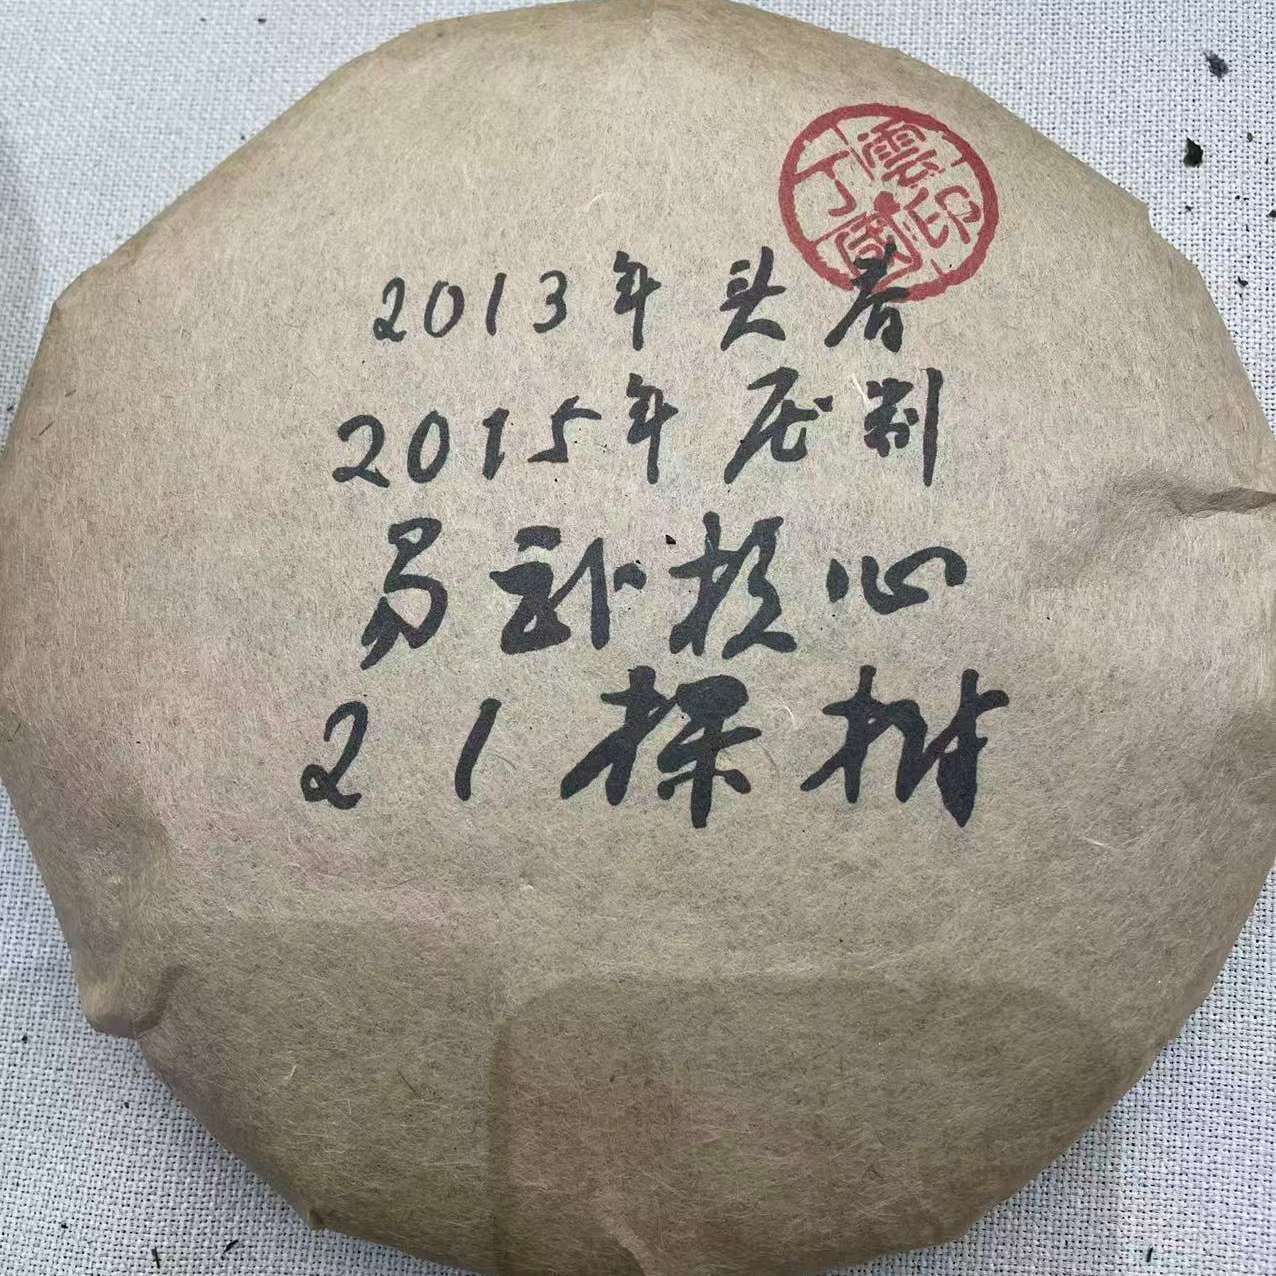 丁國雲印
2013年头春
2015年压制
易武核心
21棵树